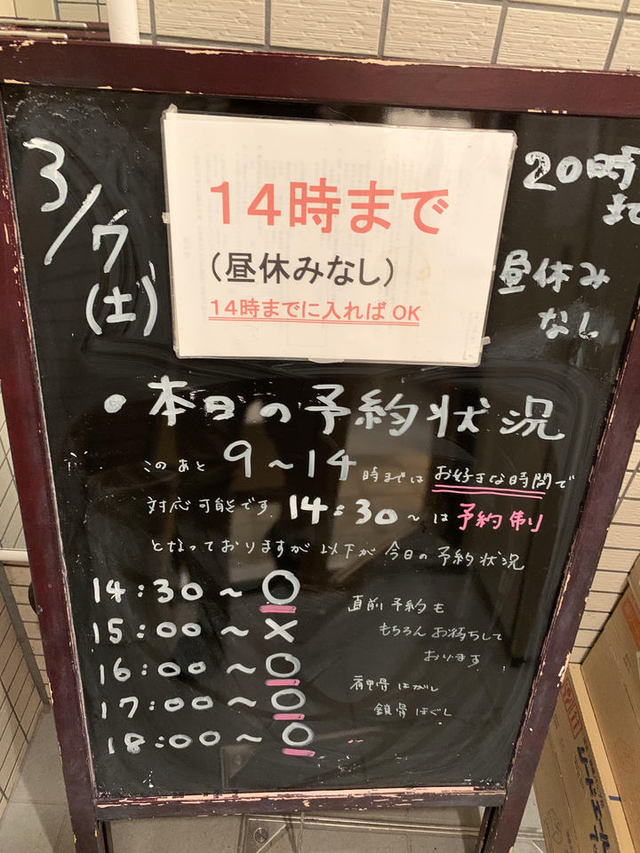 3/7
(土)
14時まで
(昼休みなし)
14時までに入ればOK
20時
まで
昼休み
なし
・本日の予約状況
このあと 9~14時までは お好きな時間で
対応可能です。14:30~は予約制
となっておりますが 以下が 今日の予約状況
14:30~○
15:00~×
16:00~○
17:00~○
18:00~○
直前予約も
もちろんお待ちして
おります
肩甲骨はがし
鎖骨ほぐし